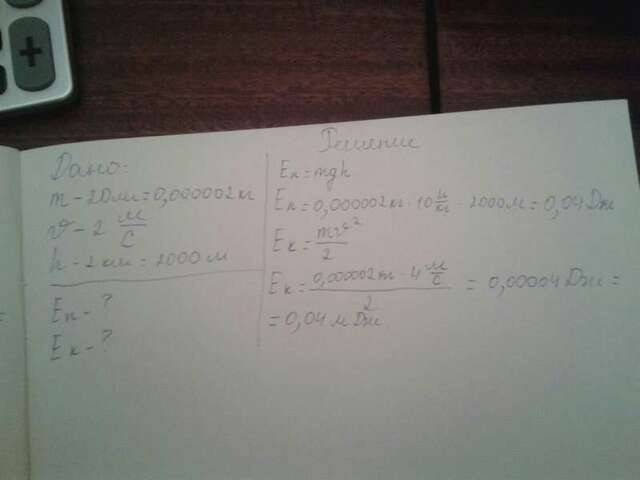 +
Дано:
m - 20 мг = 0,000002 кг
v - 2 м/с
h - 2 км = 2000 м
Eп - ?
Eк - ?
Решение
Eп = mgh
Eп = 0,000002 кг · 10 Н/кг · 2000 м = 0,04 Дж
Eк = mv²/2
Eк = 0,000002 · 4 м/с / 2 = 0,00004 Дж =
= 0,04 мДж